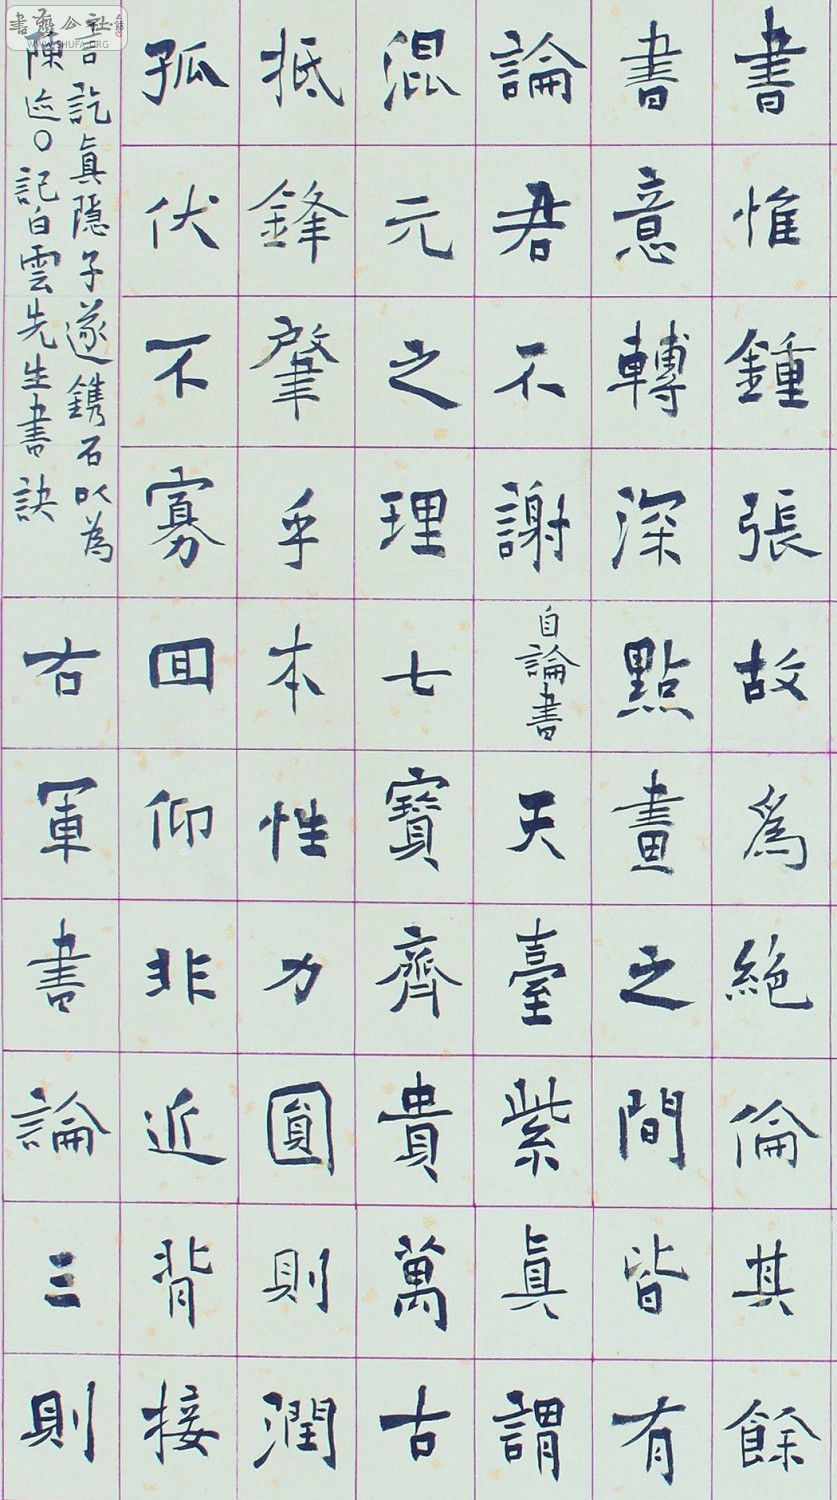 書惟鍾張故爲絶倫其餘
書意轉深點畫之間皆有
論君不謝自論書天臺紫眞謂
混元之理七寶齊貴萬古
抵鋒肇乎本性力圓則潤
孤伏不寡回仰非近背接
言訖眞隱子遂鐫石以為
陳迹〇記白雲先生書訣
右軍書論三則
WWW.SHUFA.ORG